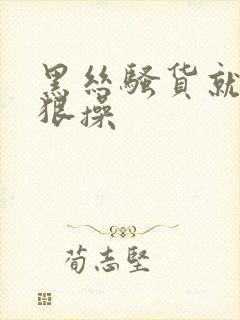 黑丝骚货就
狠操
荀志堅